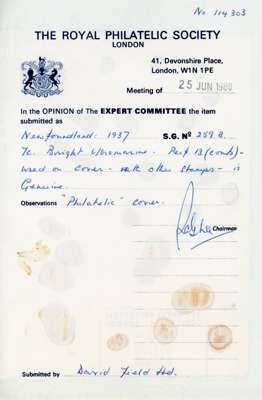 No 114303
THE ROYAL PHILATELIC SOCIETY
LONDON
41, Devonshire Place,
London, W1N 1PE
Meeting of 25 JUN 1980
In the OPINION of The EXPERT COMMITTEE the item
submitted as
Newfoundland: 1937 S.G. No 259 B.
7c. Bright Ultramarine. Perf 13 (comb) -
used on cover - with other stamps - is
Genuine.
Observations "Philatelic" cover.
Chairman
Submitted by David Field Ltd.